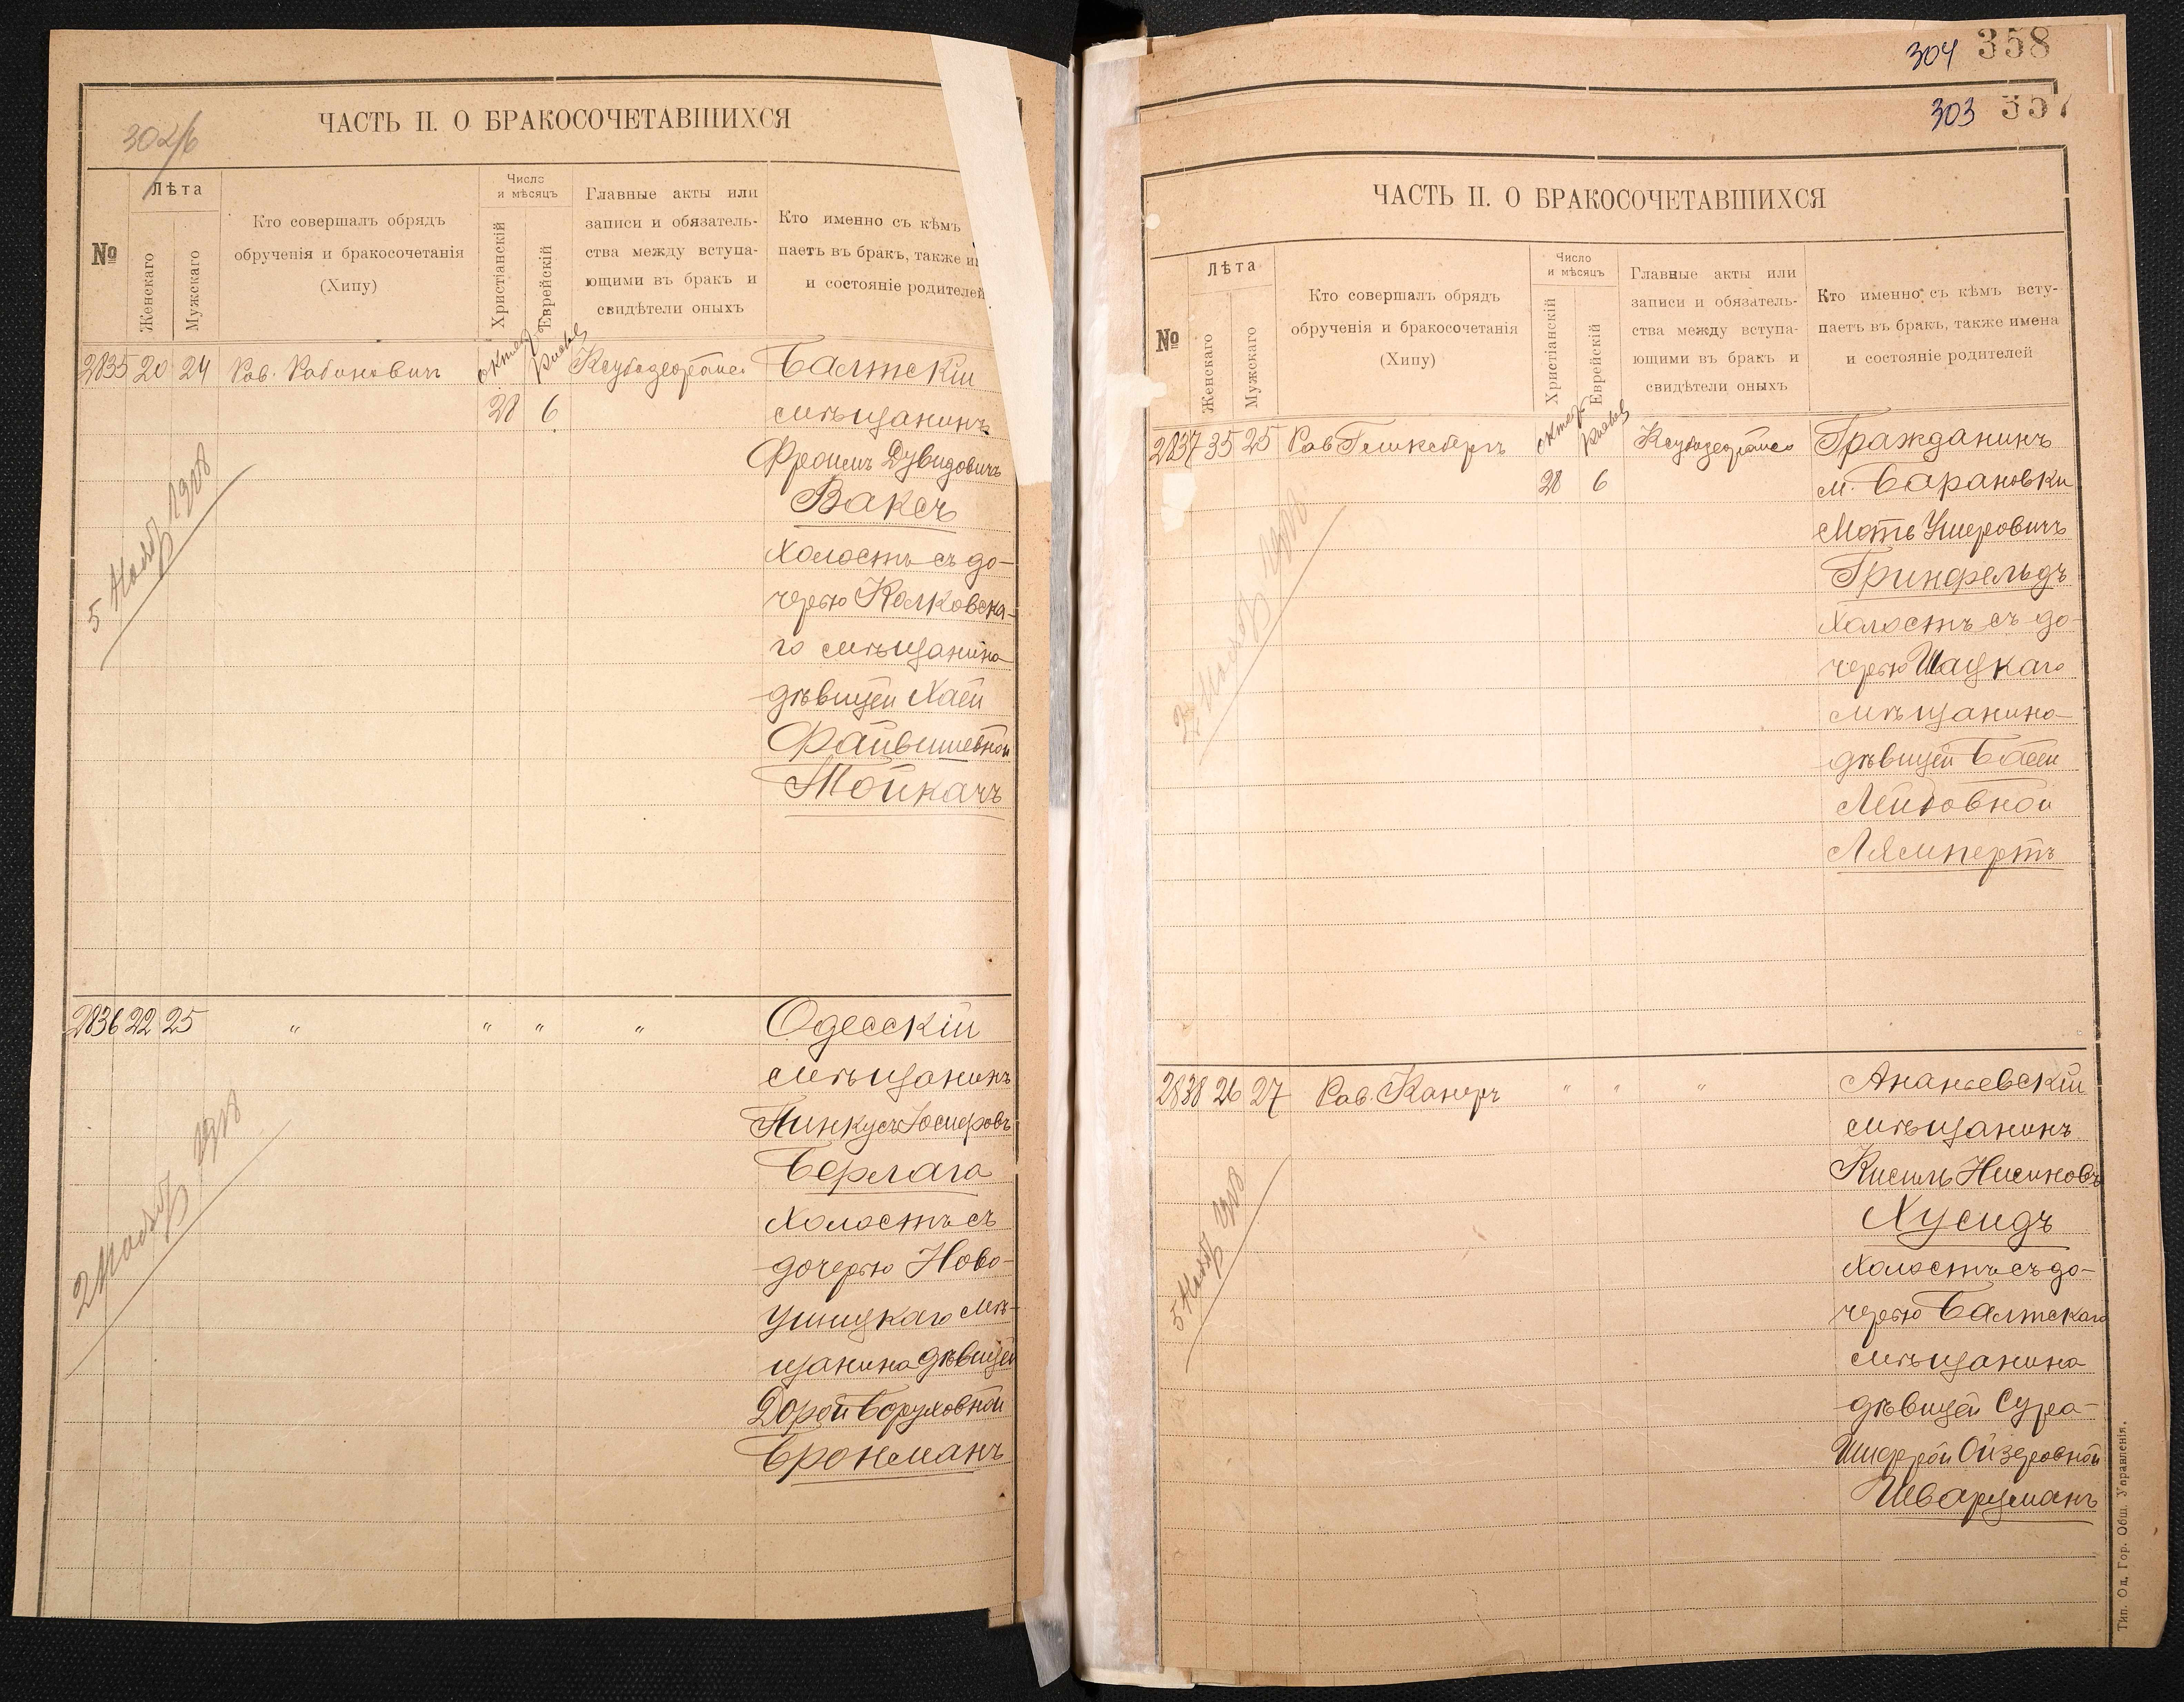 302/б
ЧАСТЬ II. О БРАКОСОЧЕТАВШИХСЯ
№
Лѣта
Женскаго
Мужскаго
Кто совершалъ обрядъ
обрученія и бракосочетанія
(Хипу)
Число
и мѣсяцъ
Христіанскій
Еврейскій
Главные акты или
записи и обязатель-
ства между вступа-
ющими въ бракъ и
свидѣтели оныхъ
Кто именно съ кѣмъ
паетъ въ бракъ, также и
и состояніе родителей
2835 20 24 Рав. Рабиновичъ 28 6 Балтскій
мѣщанинъ
Фроимъ Дувидовичъ
Ваксъ
холостъ съ до-
черью Колковска-
го мѣщанина
дѣвицей Хаей
Файвишевной
Тойкачъ
5 Ноябр 1918
2836 22 25 " " " " Одесскій
мѣщанинъ
Пинкусъ Іосифовъ
Берлага
холостъ съ
дочерью Ново-
Ушицкаго мѣ-
щанина дѣвицей
Дорой Боруховной
Бронсманъ
2 Ноябр 1918
304 358
303 357
ЧАСТЬ II. О БРАКОСОЧЕТАВШИХСЯ
№
Лѣта
Женскаго
Мужскаго
Кто совершалъ обрядъ
обрученія и бракосочетанія
(Хипу)
Число
и мѣсяцъ
Христіанскій
Еврейскій
Главные акты или
записи и обязатель-
ства между вступа-
ющими въ бракъ и
свидѣтели оныхъ
Кто именно съ кѣмъ всту-
паетъ въ бракъ, также имена
и состояніе родителей
2837 35 25 Рав 28 6 Гражданинъ
м. Барановки
Моть Ушеровичъ
Гринфельдъ
холостъ съ до-
черью Шацкаго
мѣщанина
дѣвицей Басей
Лейбовной
Лямпертъ
2 Ноябр 1918
2838 26 27 Рав. Канеръ " " " Ананьевскій
мѣщанинъ
Кисиль Нисиновъ
Хусидъ
холостъ съ до-
черью Балтскаго
мѣщанина
дѣвицей Сура-
Шифрой Ойзеровной
Шварцманъ
5 Ноябр 1918
Тип. Од. Гор. Общ. Управленія.